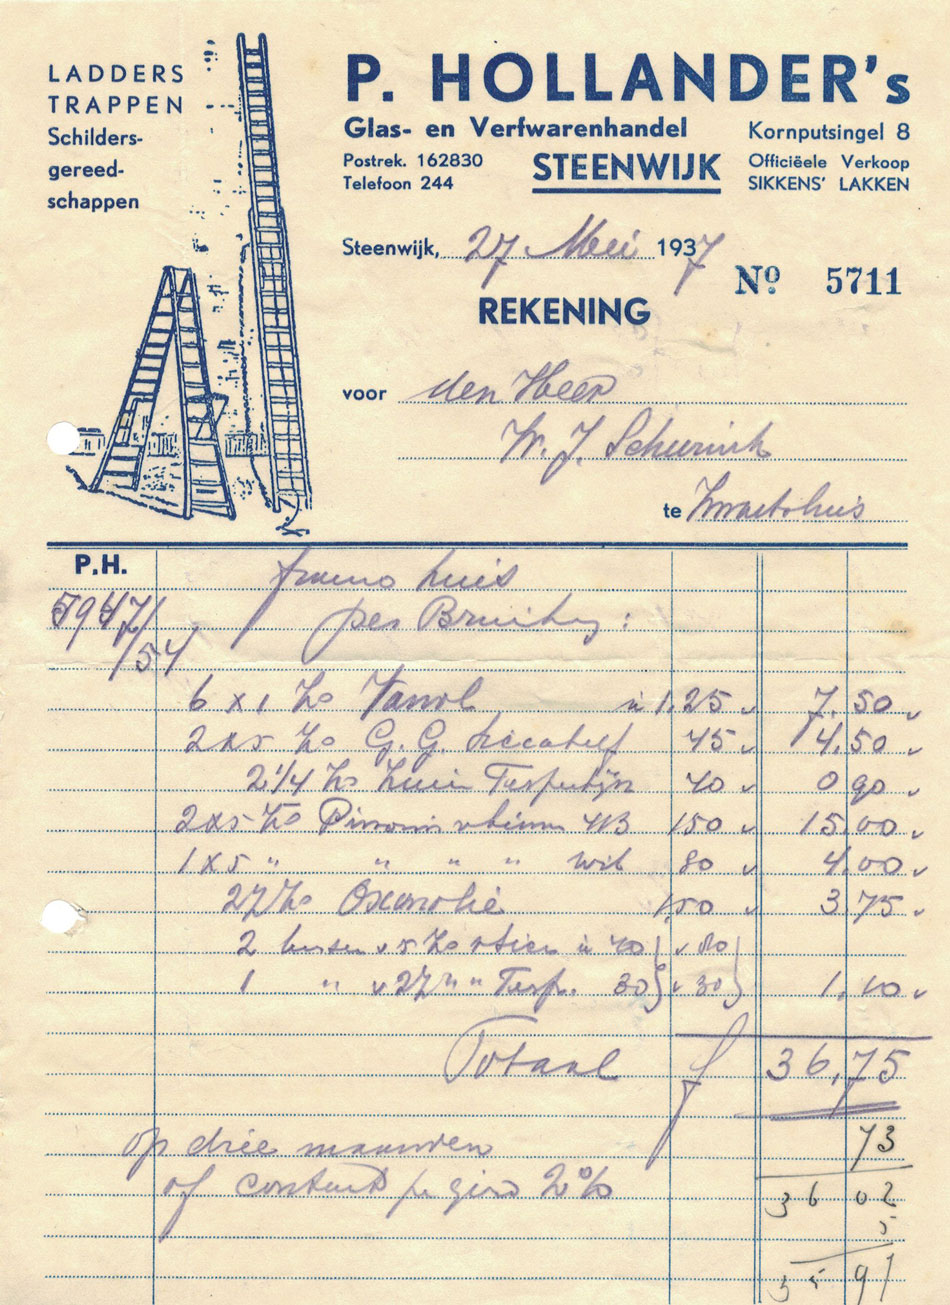 LADDERS
TRAPPEN
Schilders-
gereed-
schappen
P. HOLLANDER's
Glas- en Verfwarenhandel
Kornputsingel 8
Postrek. 162830
Telefoon 244
STEENWIJK
Officiëele Verkoop
SIKKENS' LAKKEN
Steenwijk, 27 Mei 1937
No 5711
REKENING
voor den Heer
W. J. Schurink
te
P.H.
franco huis
per :
6 x 1 Ko in 1,25 7.50
2x5 Ko G. G. 45 4.50
2 1/4 Ko 40 0 90
2x5 Ko 150 15.00
1 x 5 " " " " wit 80 4.00
2½ Ko 1,50 3.75
2 bussen v 5 Ko in 40 80
1 " v 2½ " " Terp. 30 30 1.10
Totaal f 36,75
73
op drie maanden
of contant p giro 2%
36 02
5
35 97